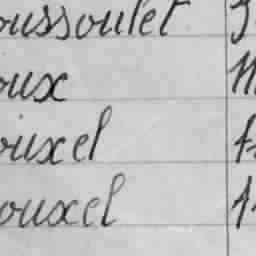 oussoulet
oux
ouxel
ouxel